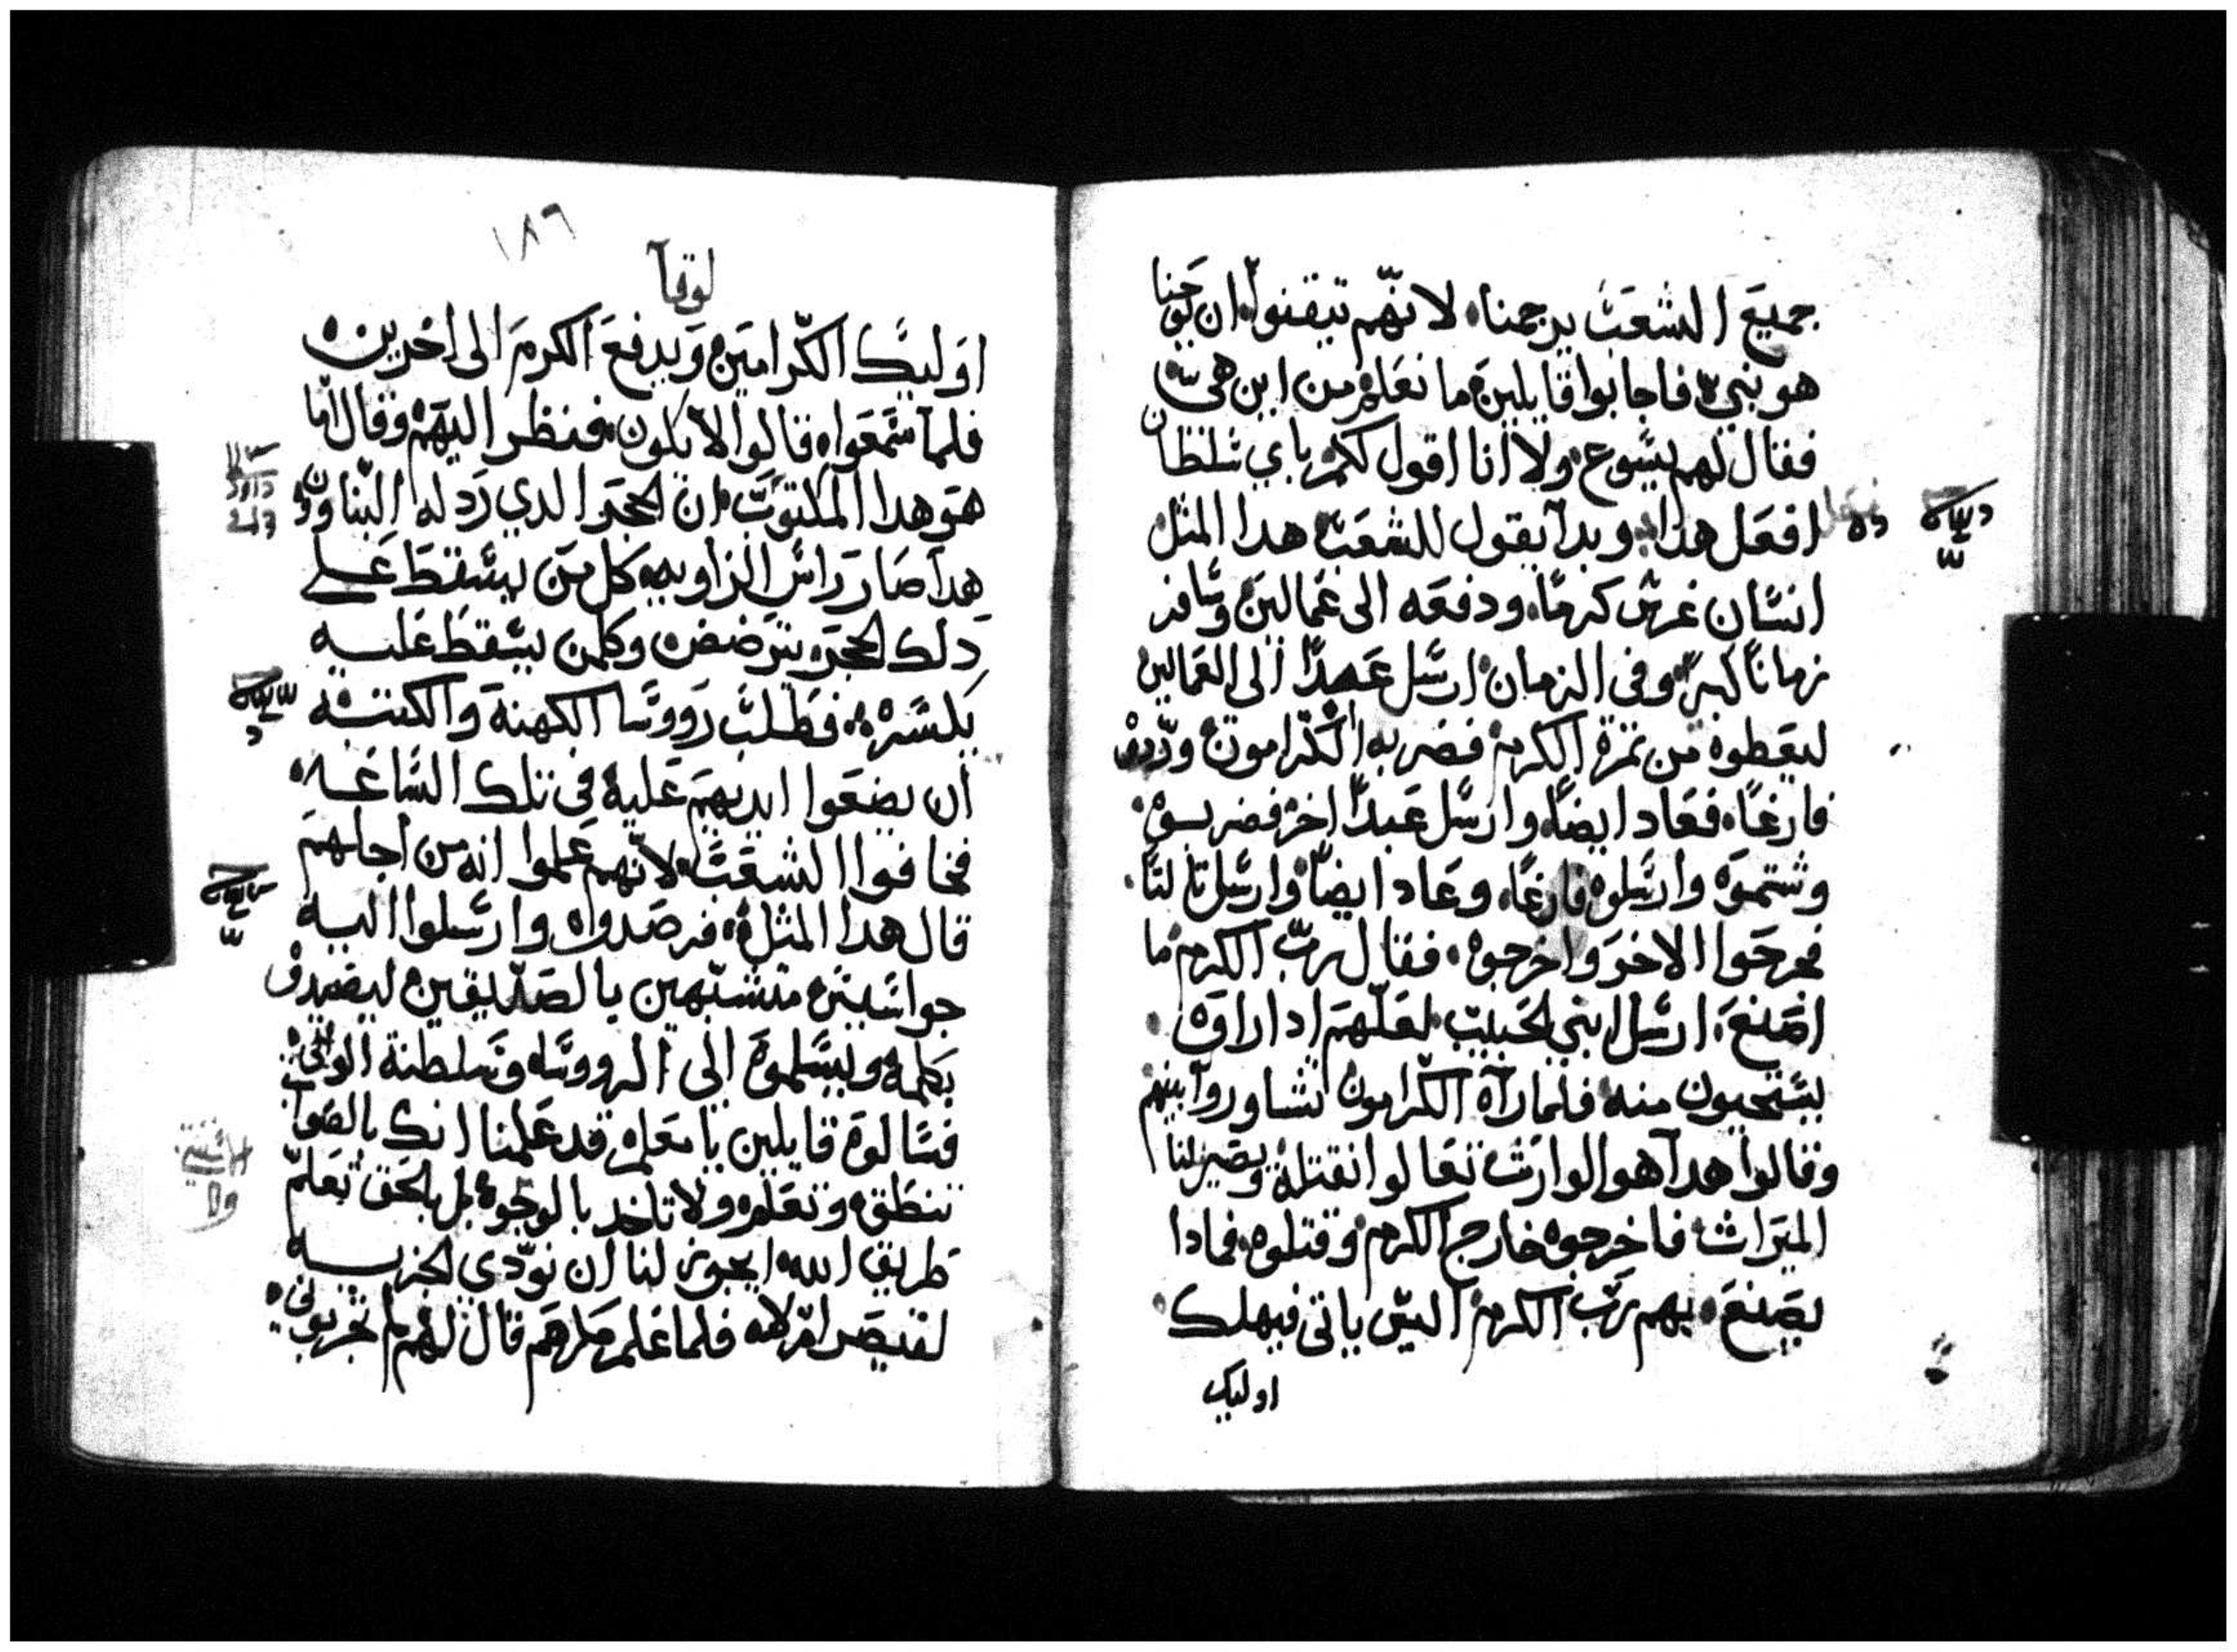 جميع الشعب يرجمنا. لانهم تيقنوا ان يوحنا
هو نبي فاجابوا قايلين ما نعلم من اين هي
فقال لهم يسوع. ولا انا اقول لكم باي سلطان
افعل هدا. وبدا يقول للشعب هدا المثل
انسان غرس كرمًا. ودفعه الى عمالين وسافر
زمانًا كبير. وفي الزمان ارسل عبدًا الى العمالين
ليعطوه من تمرة الكرم فضربه الكرامون وردوه
فارغًا. فعاد ايضًا. وارسل عبدًا اخر فضربوه.
وشتموه وارسلوه فارغًا. وعاد ايضًا وارسل تالتًا.
فجرحوا الاخر واخرجوه. فقال رب الكرم ما
اصنع. ارسل ابني الحبيب. لعلهم ادا راوه.
يستحيون منه. فلما راه الكرامون تشاوروا بينهم
وقالوا هدا هو الوارث تعالوا نقتله ويصير لنا
الميراث. فاخرجوه خارج الكرم وقتلوه. فمادا
يصنع. بهم رب الكرم اليس ياتي فيهلك.
اوليك
١٨٦
لوقا
اوليك الكرامين ويدفع الكرم الى اخرين
فلما سمعوا. قالوا لا يكون. فنظر اليهم وقال اما
هو هدا المكتوب. ان الحجر الدي ردله البناوون
هدا صار راس الزاويه. كل من يسقط على
دلك الحجر. يترضض وكلمن يسقط عليه
يكسره. فطلب رووسا الكهنة والكتبه
ان يضعوا ايديهم عليه في تلك الساعه
فخافوا الشعب. لانهم علموا انه من اجلهم
قال هدا المثل. فرصدوه وارسلوا اليه
جواسيس متشبهين بالصديقين ليصيدوه
بكلمه ويسلموه الى الرووسا. وسلطنة الوالي
فسالوه قايلين يا معلم. قد علمنا انك بالصواب
تنطق. وتعلم. ولا تاخد بالوجوه بل بالحق تعلم
طريق الله. ايجوز لنا ان نودي الجزيه
لقيصر ام لا. فلما علم مكرهم قال لهم لم تجربوني.